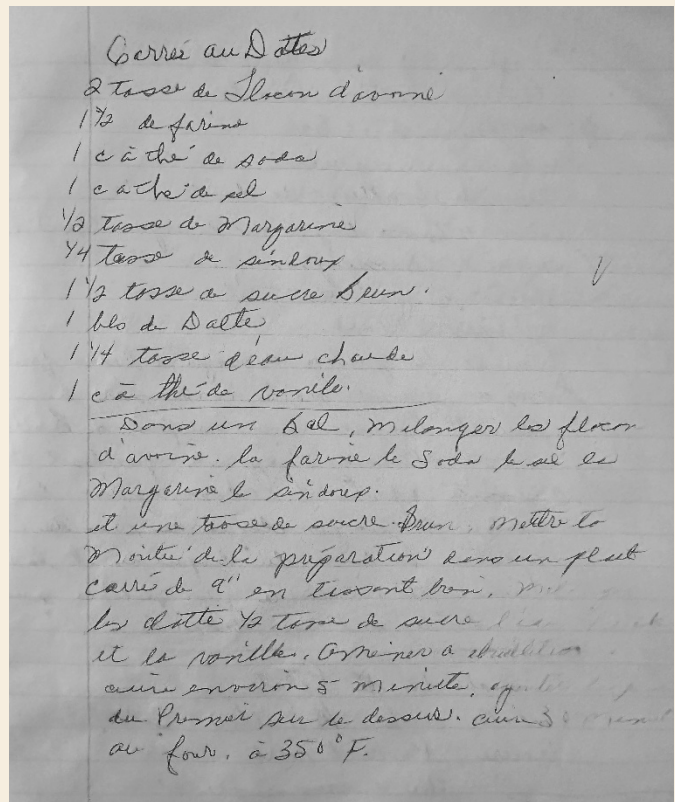 Carreé au Dattes
2 tasse de Flocon d'avoine
1 1/2 de farine
1 c à thé de soda
1 c a thé de sel
1/2 tasse de Margarine
1/4 tasse de sindoux
1 1/2 tasse de sucre Brun.
1 bls de Datte
1 1/4 tasse d'eau chaude
1 c à thé de vanile.
Dans un Bal, Mélanger les flocon
d'avoine. la farine le Soda le sel la
Margarine le sindoux.
et une tasse de sucre. Brun, Mettre la
Moitié de la préparation dans un plat
carré de 9" en tassant bien,
les datte 1/2 tasse de sucre
et la vanille. Amener a ebullition
cuire environ 5 Minutte,
du Premier sur le dessus. cuire
au four. à 350°F.